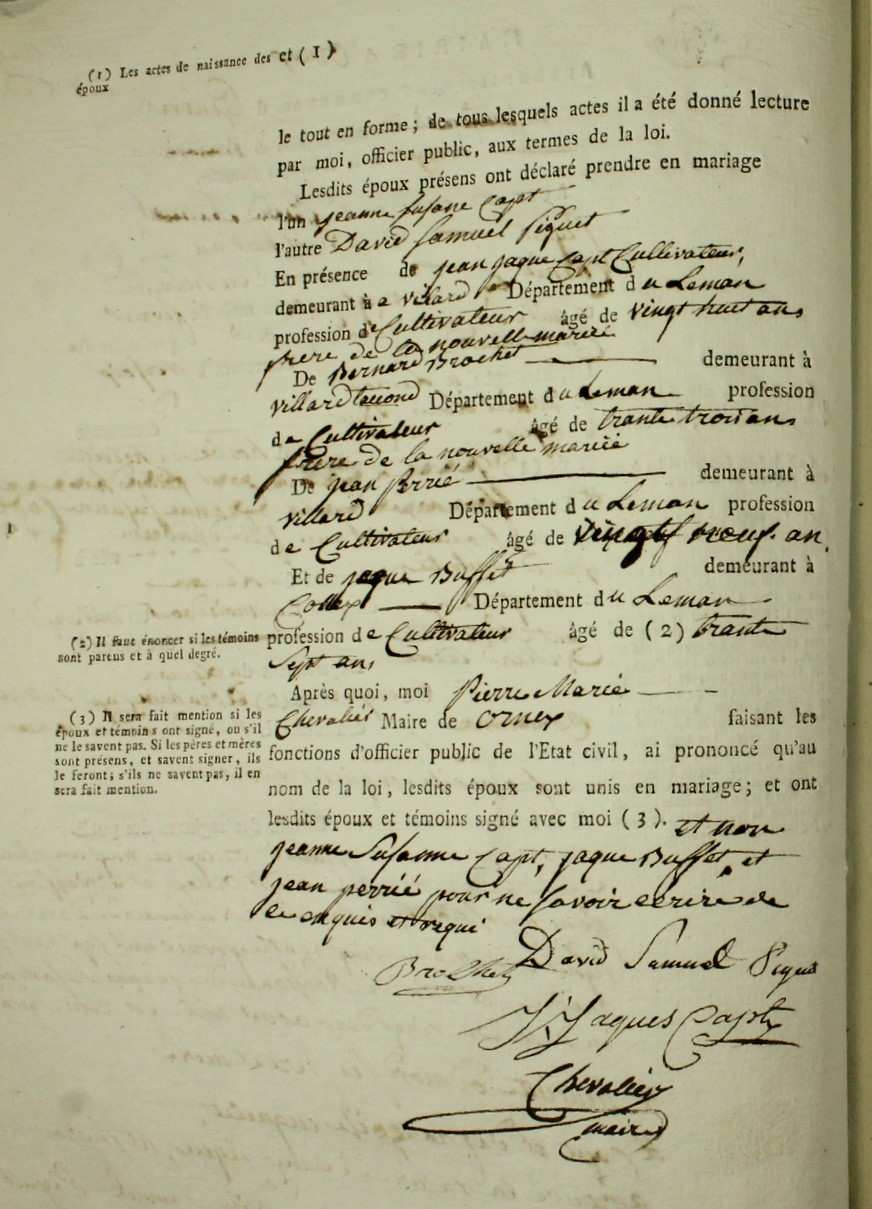 (1) Les actes de naissance des et (1)
époux
le tout en forme; de tous lesquels actes il a été donné lecture
par moi, officier public, aux termes de la loi.
Lesdits époux présens ont déclaré prendre en mariage
l'un jeanne susane Capt
l'autre David Samuel Piquet
En présence de jean jaque Capt Cultivateur,
demeurant à a Villard Département du Leman
profession de Cultivateur âgé de vingt huit ans
frere de la nouvelle mariée
De Bernard Brochet demeurant à
Villard Département du Leman profession
de Cultivateur âgé de trante trois ans
frere de la nouvelle mariée
De jean demeurant à
Villard Département du Leman profession
de Cultivateur âgé de vingt neuf an
Et de jaque Buffet demeurant à
Collex Département du Leman
(2) Il faut énoncer si les témoins
sont partus et à quel degré.
profession de Cultivateur âgé de (2) trante
Sept ans
Après quoi, moi Pierre Marie
(3) Il sera fait mention si les
époux et témoins ont signé, ou s'il
ne le savent pas. Si les pères et mères
sont présens, et savent signer, ils
le feront; s'ils ne savent pas, il en
sera fait mention.
Chevalier Maire de Ornex faisant les
fonctions d'officier public de l'Etat civil, ai prononcé qu'au
nom de la loi, lesdits époux sont unis en mariage; et ont
lesdits époux et témoins signé avec moi (3). et non
jeanne Susanne Capt, jaque Buffet, et
jean perrié pour ne savoir ecrire de
ce enquis et requi
David Samuel Pigue
Brochet
J: Jaques Capt
Chevalier
maire